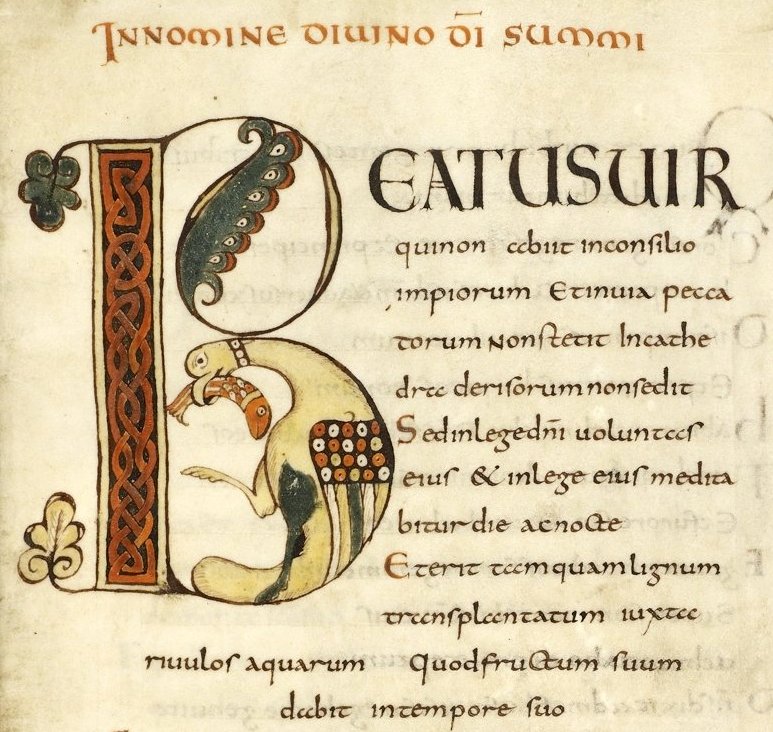 INNOMINE DIUINO DI SUMMI
BEATUSUIR
quinon abiit inconsilio
impiorum Etinuia pecca
torum Nonstetit Incathe
dra derisorumnonsedit
Sedinlegedni uoluntas
eius & inlege eius medita
bitur die acnocte
Eterit tamquamlignum
transplantatum iuxta
riuulos aquarum Quodfructum suum
dabit intempore suo